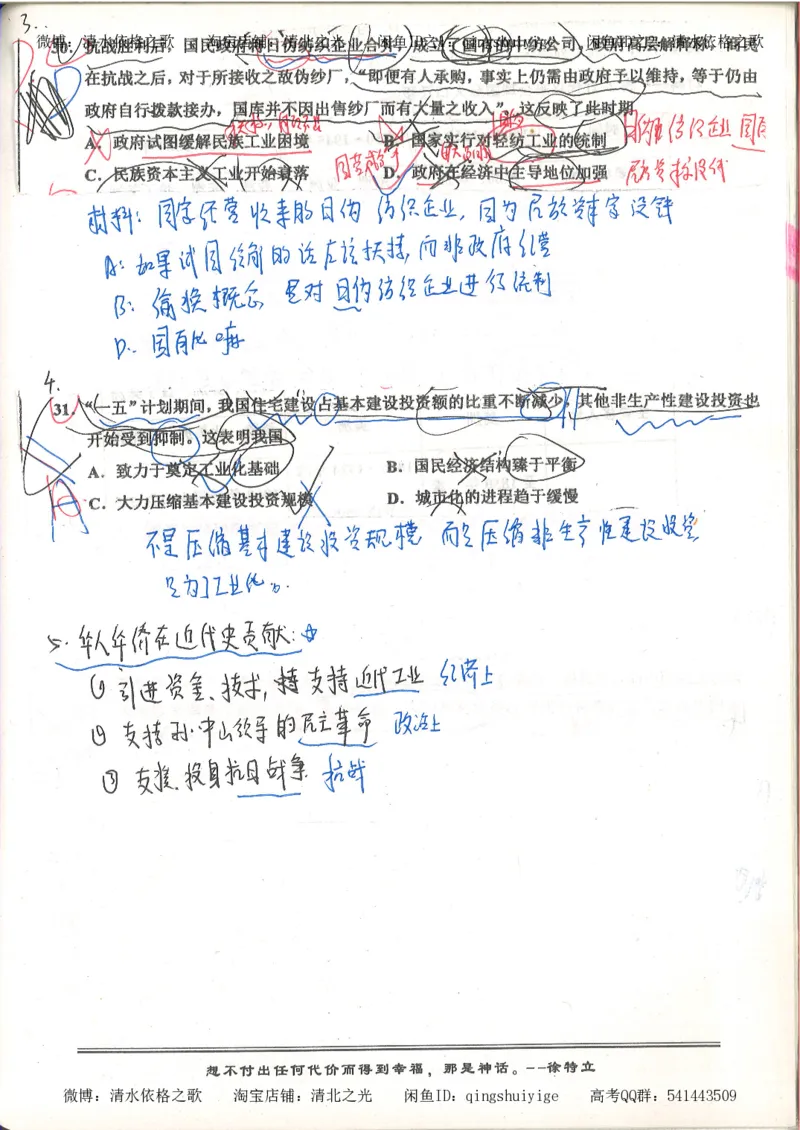 3.
微博：清水依格之歌 淘宝店铺：清北之光 闲鱼ID：qingshuiyige 清水依格之歌
30. 抗战胜利后，国民政府将日伪纺织企业合并，成立了国有的中纺公司，政府高层解释称，商民
在抗战之后，对于所接收之敌伪纱厂，“即便有人承购，事实上仍需由政府予以维持，等于仍由
政府自行拨款接办，国库并不因出售纱厂而有大量之收入”。这反映了此时期
A. 政府试图缓解民族工业困境 B. 国家实行对轻纺工业的统制
C. 民族资本主义工业开始衰落 D. 政府在经济中主导地位加强
材料：国家经营收来的日伪纺织企业，因为民族资本家没钱
A：如果试图缓解的话应该扶持，而非政府经营
B：偷换概念 是对日伪纺织企业进行统制
D：国有化嘛
4.
31. “一五”计划期间，我国住宅建设占基本建设投资额的比重不断减少，其他非生产性建设投资也
开始受到抑制。这表明我国
A. 致力于奠定工业化基础 B. 国民经济结构臻于平衡
C. 大力压缩基本建设投资规模 D. 城市化的进程趋于缓慢
不是压缩基本建设投资规模 而是压缩非生产性建设投资
是为了工业化。
5. 华人华侨在近代史贡献：☆
① 引进资金、技术，支持近代工业 经济上
② 支持孙中山领导的民主革命 政治上
③ 支援、投身抗日战争 抗战
想不付出任何代价而得到幸福，那是神话。--徐特立
微博：清水依格之歌 淘宝店铺：清北之光 闲鱼ID：qingshuiyige 高考QQ群：541443509